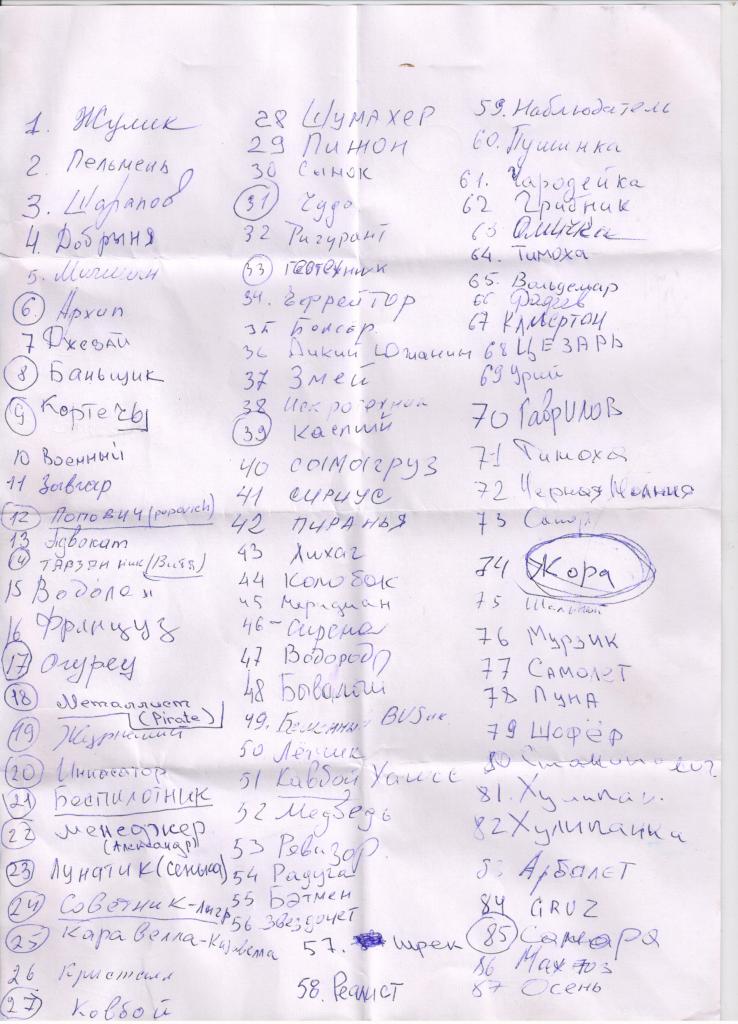 1. Жулик
2. Пельмень
3. Шарапов
4. Добрыня
5.
6. Архип
7 Джедай
8 Баньщик
9 Кортечы
10 Военный
11 Зывгар
12 Попович (popovich)
13 Адвокат
14 Тарзанник (Витя)
15 Водолаз
16 Француз
17 Огурец
18 Металлист
(Pirate)
19
20 Инносатор
21 Беспилотник
22 менеджер
(Александр)
23 Лунатик (Сенька)
24 Советник-лигр
25 Каравелла-
26 Кристалл
27 Ковбой
28 Шумахер
29 Пижон
30 Сынок
31 Чудо
32 Фигурант
33 геотехник
34. Ефрейтор
35 Боксёр
36 Дикий Южанин
37 Змей
38
39 Каспий
40 самогруз
41 сириус
42 пиранья
43 Лихач
44 Колобок
45 Меридиан
46 - Сирена
47 Водород
48 Бывалый
49. BUSик
50 Лётчик
51 Кавбой Хаисс
52 Медведь
53 Ревизор
54 Радуга
55 Бэтмен
56 Звездочёт
57. шрек
58. Реалист
59. Наблюдатель
60. Пушинка
61. Чародейка
62 Грибник
63 Омичка
64. Тимоха
65. Вольдемар
66 Фадев
67 Кмвертон
68 ЦЕЗАРЬ
69 Урий
70 Гаврилов
71 Тимоха
72 Черная Молния
73
74 Жора
75 Шальной
76 Мурзик
77 Самолет
78 Луна
79 Шофёр
80
81. Хулиган.
82 Хулиганка
83 Арбалет
84 GRUZ
85 Самара
86
87 Осень